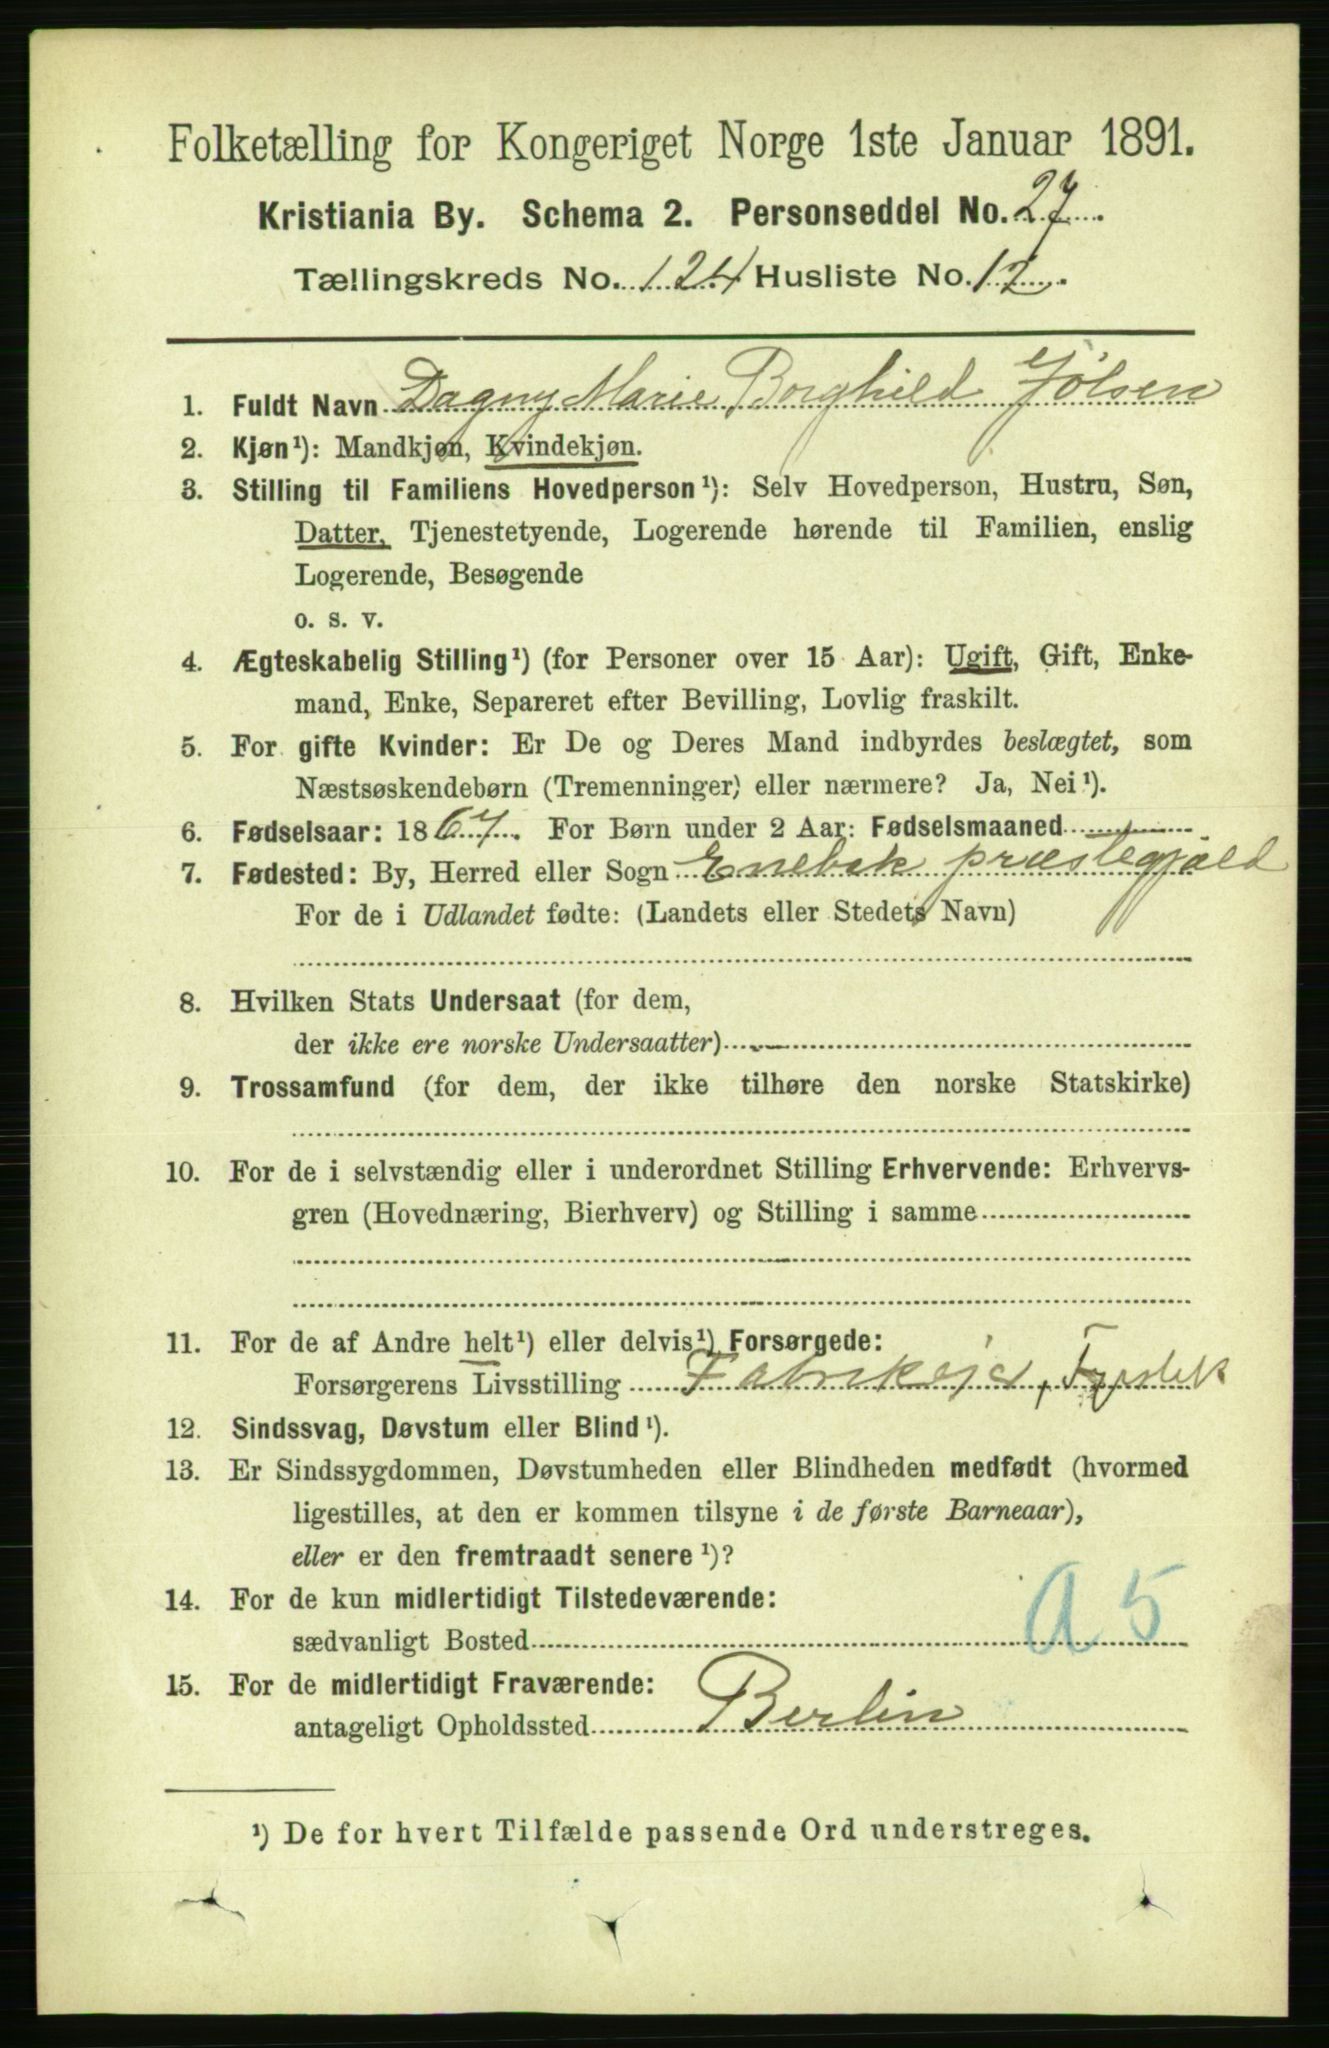 Folketælling for Kongeriget Norge 1ste Januar 1891.
Kristiania By. Schema 2. Personseddel No. 27.
Tællingskreds No. 124 Husliste No. 12.
1. Fuldt Navn Dagny Marie Borghild Jølsen
2. Kjøn¹): Mandkjøn, Kvindekjøn.
3. Stilling til Familiens Hovedperson¹): Selv Hovedperson, Hustru, Søn,
Datter, Tjenestetyende, Logerende hørende til Familien, enslig
Logerende, Besøgende
o. s. v.
4. Ægteskabelig Stilling¹) (for Personer over 15 Aar): Ugift, Gift, Enke-
mand, Enke, Separeret efter Bevilling, Lovlig fraskilt.
5. For gifte Kvinder: Er De og Deres Mand indbyrdes beslægtet, som
Næstsøskendebørn (Tremenninger) eller nærmere? Ja, Nei¹).
6. Fødselsaar: 1867. For Børn under 2 Aar: Fødselsmaaned
7. Fødested: By, Herred eller Sogn Enebak præstegjæld
For de i Udlandet fødte: (Landets eller Stedets Navn)
8. Hvilken Stats Undersaat (for dem,
der ikke ere norske Undersaatter)
9. Trossamfund (for dem, der ikke tilhøre den norske Statskirke)
10. For de i selvstændig eller i underordnet Stilling Erhvervende: Erhvervs-
gren (Hovednæring, Bierhverv) og Stilling i samme
11. For de af Andre helt¹) eller delvis¹) Forsørgede:
Forsørgerens Livsstilling Fabrikejer,
12. Sindssvag, Døvstum eller Blind¹).
13. Er Sindssygdommen, Døvstumheden eller Blindheden medfødt (hvormed
ligestilles, at den er kommen tilsyne i de første Barneaar),
eller er den fremtraadt senere¹)?
14. For de kun midlertidigt Tilstedeværende:
sædvanligt Bosted A 5
15. For de midlertidigt Fraværende:
antageligt Opholdssted Berlin
¹) De for hvert Tilfælde passende Ord understreges.